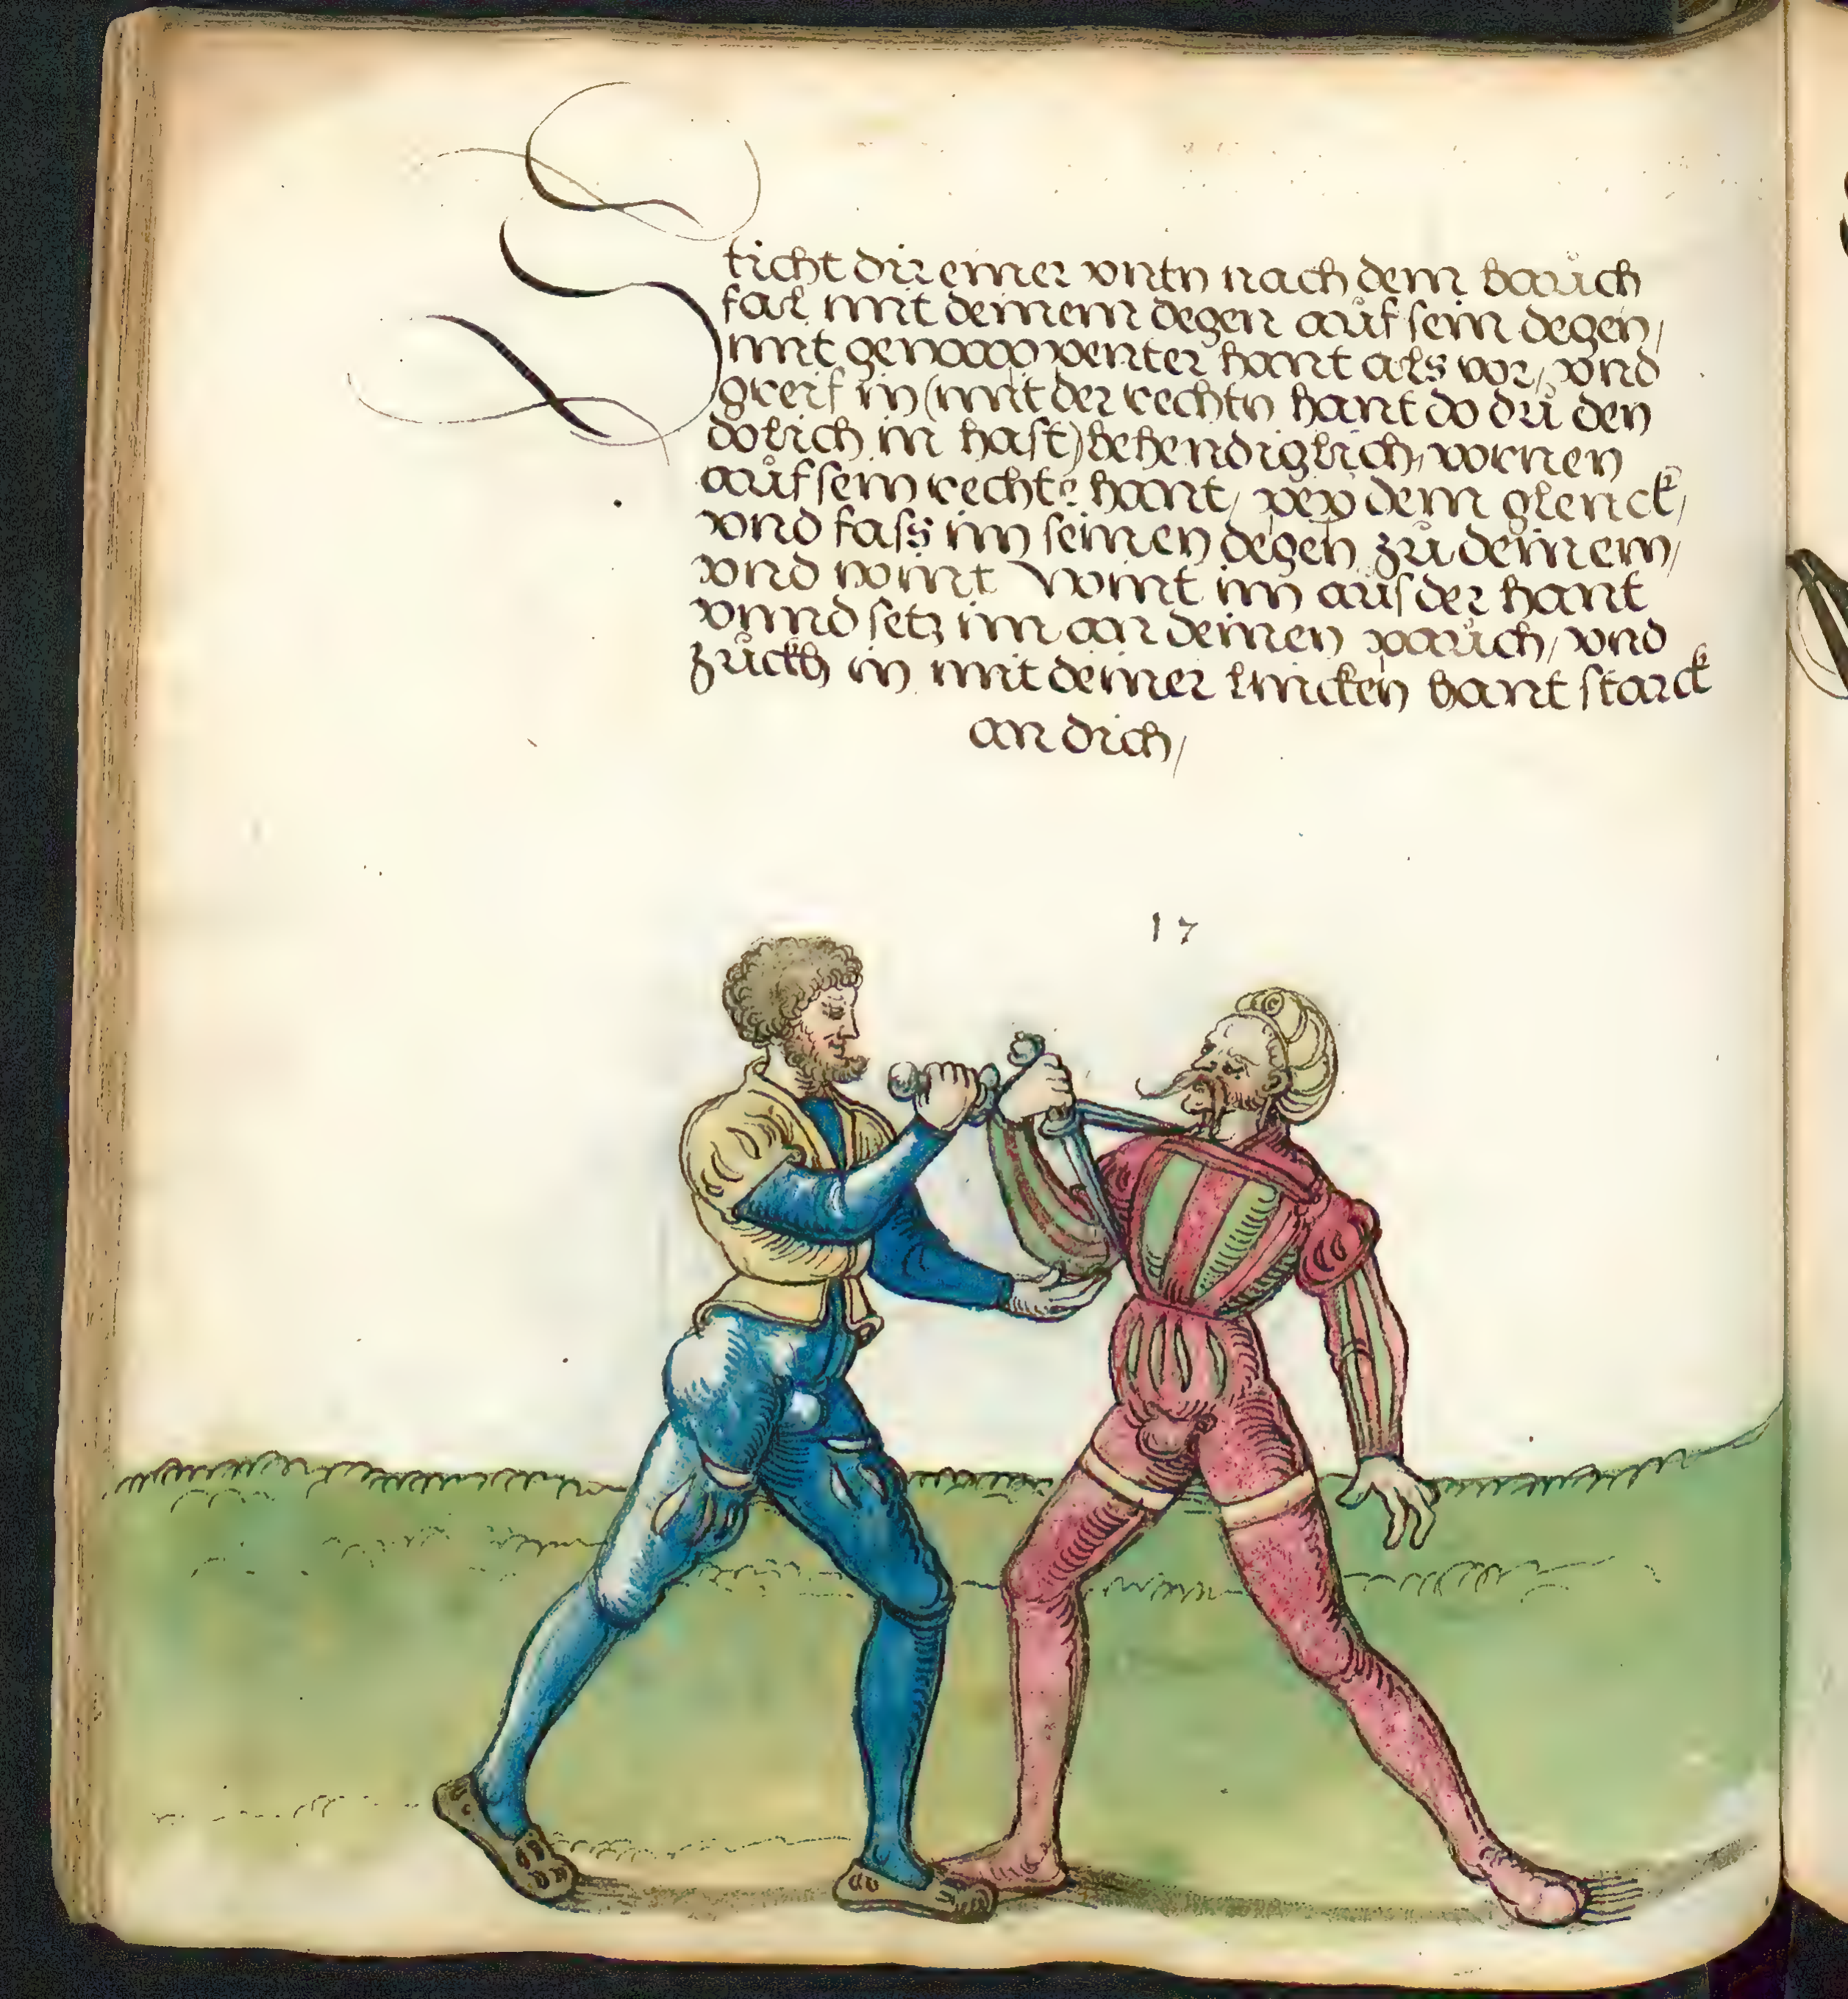 Sticht dir einer vntn nach dem bauͦch
fal mit deinem degen auͦf sein degen/
mit gewappenter hant als vor/ vnd
greif in (mit der rechtn hant do duͦ den
dolich in hast) behendiglich, vornen
auͦf sein rechte hant/ pey dem glenck/
vnd fass im seinen degen zuͦ deinem/
vnd nimt Nimt im aus der hant
vnnd setz im an deinen pauͦch/ vnd
zuͦckh in mit deiner lincken hant starck
an dich/
17